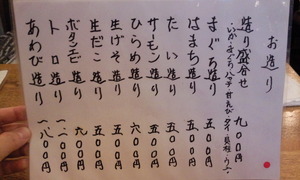 お造り
造り盛合せ 九〇〇円
・いか・まぐろ・ハマチ・甘えび・タイ・貝柱・うに
まぐろ造り 五〇〇円
はまち造り 五〇〇円
たい造り 五〇〇円
サーモン造り 五〇〇円
ひらめ造り 六〇〇円
生げそ造り 五〇〇円
生だこ造り 五〇〇円
ボタンエビ造り 九〇〇円
トロ造り 一二〇〇円
あわび造り 一八〇〇円